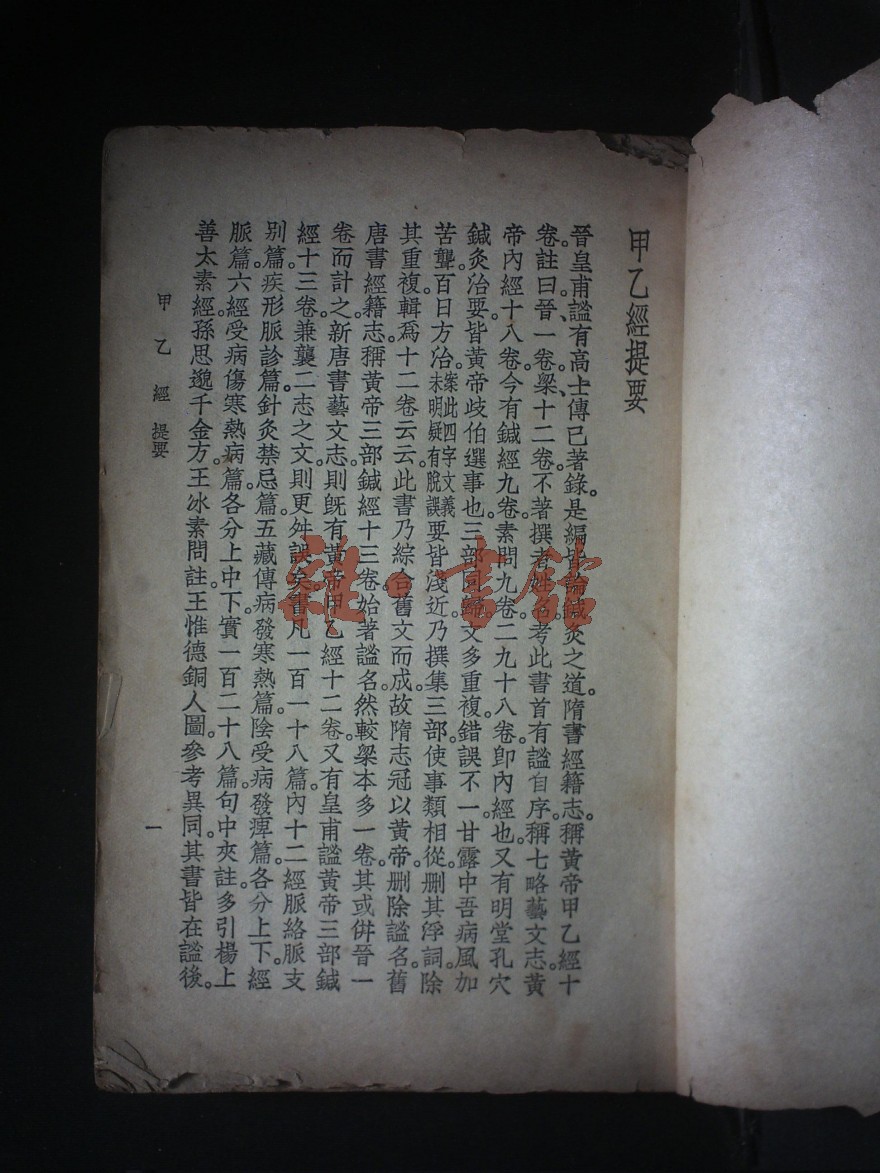 甲乙經提要
晉皇甫謐有高士傳已著錄。是編皆論鍼灸之道。隋書經籍志。稱黃帝甲乙經十
卷。註曰、晉一卷。梁十二卷。不著撰者姓名。考此書首有謐自序。稱七略藝文志。黃
帝內經十八卷。今有鍼經九卷。素問九卷。二九十八卷。卽內經也。又有明堂孔穴
鍼灸治要。皆黃帝歧伯選事也。三部同歸。文多重複。錯誤不一。甘露中吾病風。加
苦聾。百日方治。案此四字文義未明疑有脫誤要皆淺近。乃撰集三部。使事類相從。删其浮詞。除
其重複。輯爲十二卷云云。此書乃綜合舊文而成。故隋志冠以黃帝。删除謐名。舊
唐書經籍志。稱黃帝三部鍼經十三卷。始著謐名。然較梁本多一卷。其或併晉一
卷而計之。新唐書藝文志。則旣有黃帝甲乙經十二卷。又有皇甫謐黃帝三部鍼
經十三卷。兼襲二志之文。則更舛誤矣。書凡一百一十八篇。內十二經脈絡脈支
别篇。疾形脈診篇。針灸禁忌篇。五藏傳病發寒熱篇。陰受病發痺篇。各分上下。經
脈篇。六經受病傷寒熱病篇。各分上中下。實一百二十八篇。句中夾註。多引楊上
善太素經。孫思邈千金方。王冰素問註。王惟德銅人圖。參考異同。其書皆在謐後。
甲乙經 提要
一
雜·書館